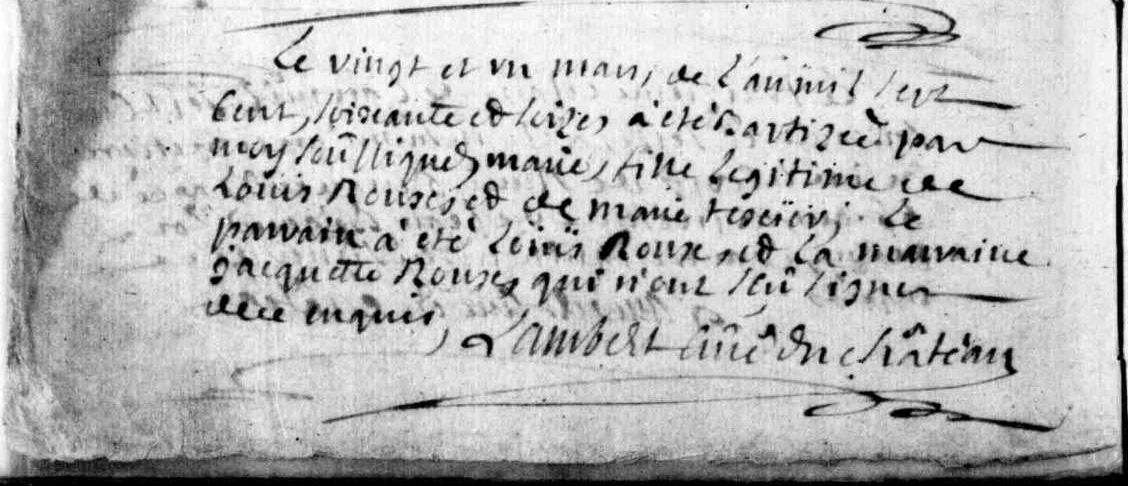 Le vingt et un mars de L'an mil sept
cent, soixante et seize, a été Baptizée par
moy soussigné, marie, fille Legitime de
Louis Roux, et de marie texeier; Le
parrain a été Loüis Roux, et La marraine
jacquette Roux, qui n'ont sçû signer
de ce enquis,
Lambert curé du château